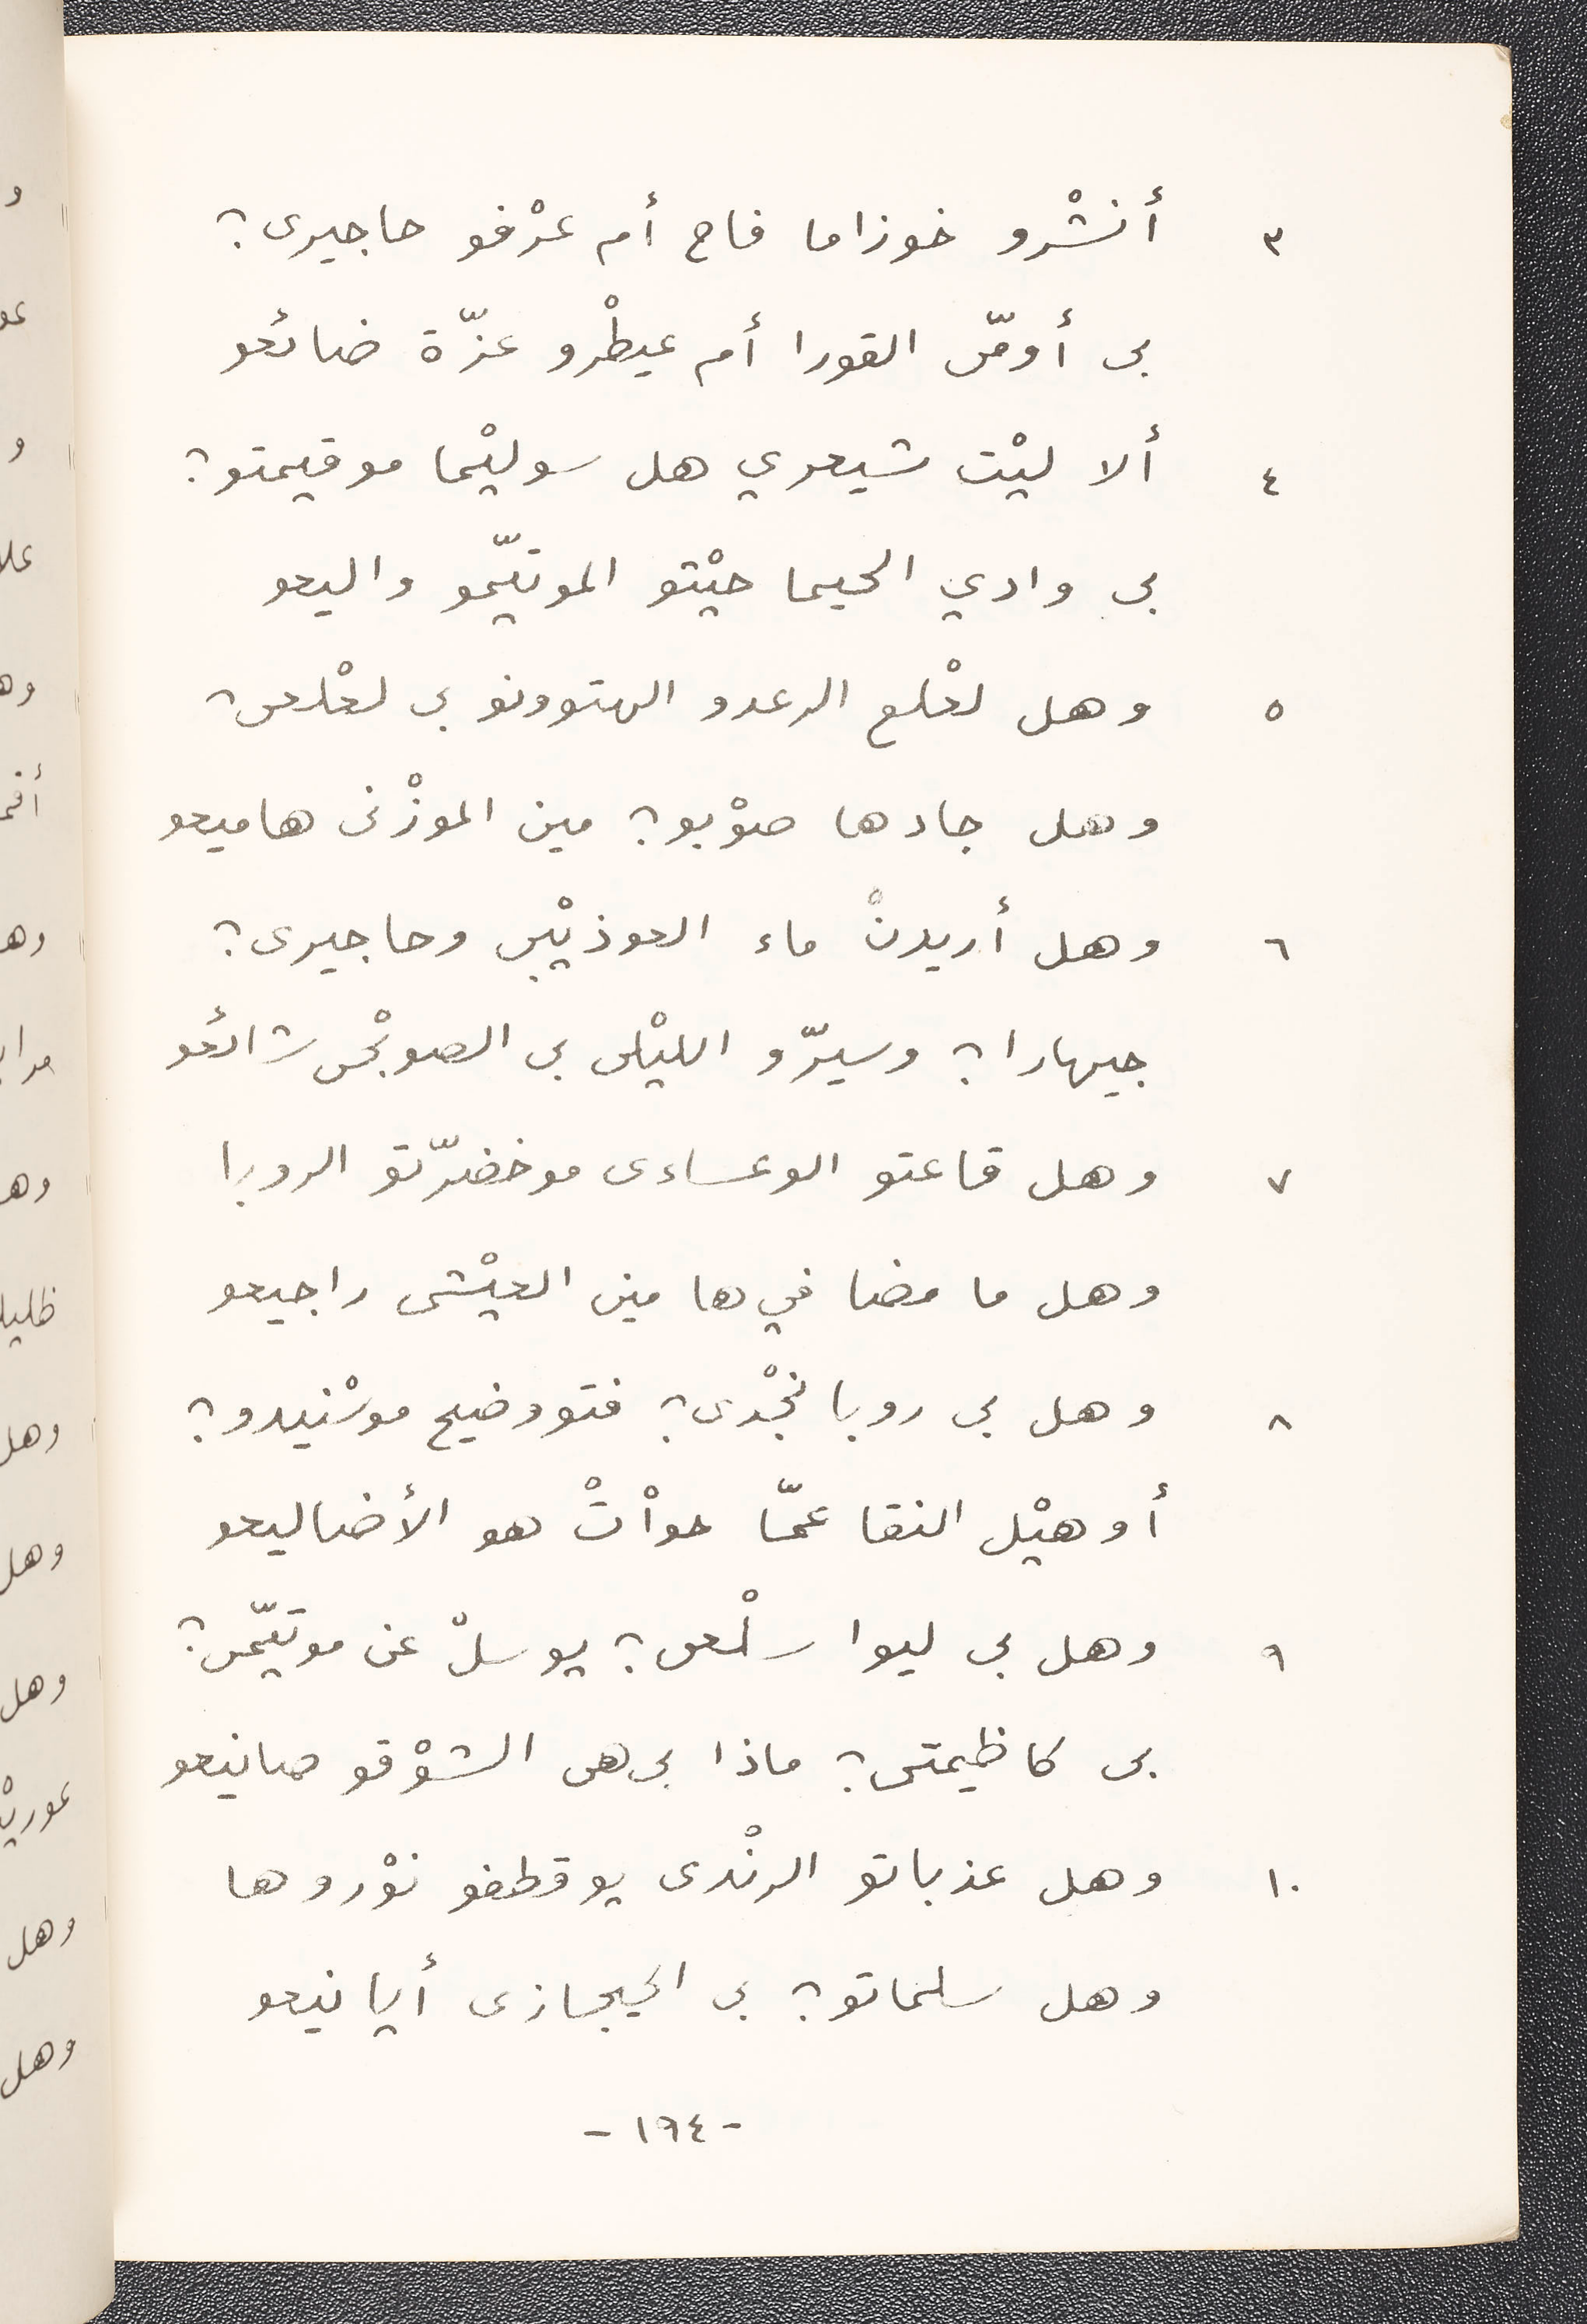 ٣ أنشْرو خوزاما فاح أم عرْفو حاجيرى؟
بى أومّى القورا أم عيطْرو عزّة ضائعو
٤ ألا ليْت شيعري هل سوليْما موقيمتو؟
بى وادي الحيما حيْثو الموتيّمو واليعو
٥ وهل لعْلع الرعدو الهتوونو بى لعْلعى؟
وهل جادها صوْبو؟ مين الموزْنى هاميعو
٦ وهل أريدنْ ماء العوذيْبى وحاجيرى؟
جيهارا؟ وسيرّو الليْلى بى الصوبْحى شائعو
٧ وهل قاعتو الوعساءى موخضرّتو الروبا
وهل ما مضا في ها مين العيْشى راجيعو
٨ وهل بى روبا نجْدى؟ فتووضيح موسْنيدو؟
أوهيْل النقا عمّا حواْتْ هو الأضاليعو
٩ وهل بى ليوا سلْعى؟ يوسلْ عن موتيّمى؟
بى كاظيمتى؟ ماذا بى هى الشوْقو صانيعو
١٠ وهل عذباتو الرنْدى يوقطفو نوْروها
وهل سلماتو؟ بى الحيجازى أيانيعو
-١٦٤-